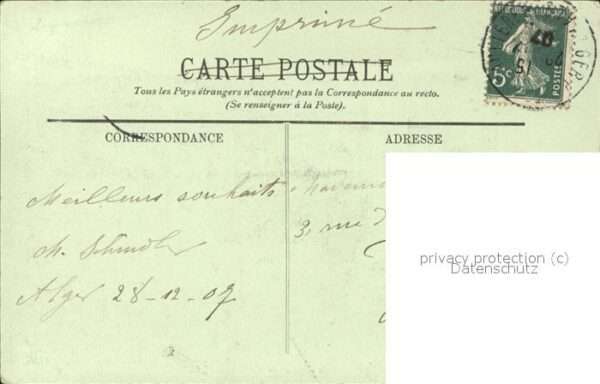 Imprimé
CARTE POSTALE
Tous les Pays étrangers n'acceptent pas la Correspondance au recto.
(Se renseigner à la Poste).
CORRESPONDANCE
ADRESSE
5c
POSTES
Meilleurs souhaits
Alger 28-12-07
3, rue
privacy protection (c)
Datenschutz